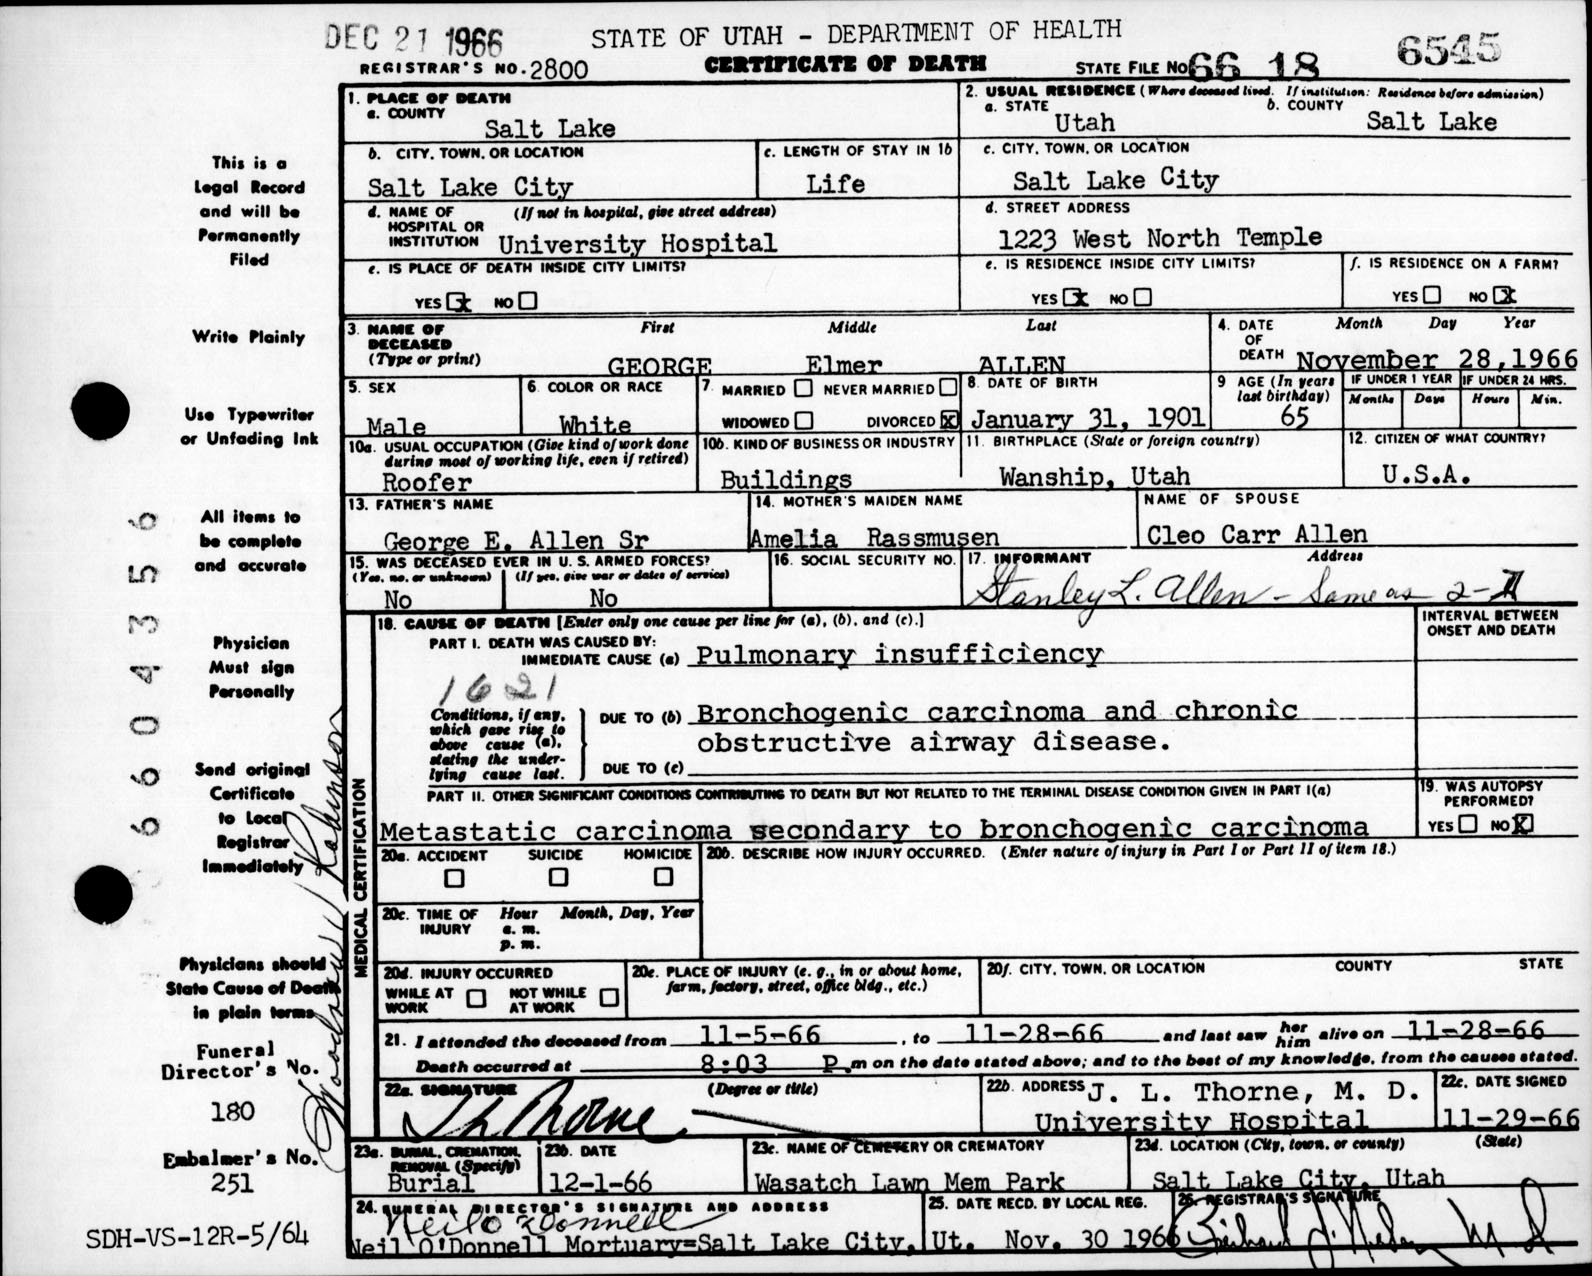 DEC 21 1966
STATE OF UTAH - DEPARTMENT OF HEALTH
6545
REGISTRAR'S NO. 2800
CERTIFICATE OF DEATH
STATE FILE NO. 66 18
1. PLACE OF DEATH
a. COUNTY
Salt Lake
2. USUAL RESIDENCE (Where deceased lived. If institution: Residence before admission)
a. STATE b. COUNTY
Utah Salt Lake
b. CITY, TOWN, OR LOCATION
Salt Lake City
c. LENGTH OF STAY IN 1b
Life
c. CITY, TOWN, OR LOCATION
Salt Lake City
d. NAME OF (If not in hospital, give street address)
HOSPITAL OR
INSTITUTION University Hospital
d. STREET ADDRESS
1223 West North Temple
e. IS PLACE OF DEATH INSIDE CITY LIMITS?
YES x NO
e. IS RESIDENCE INSIDE CITY LIMITS?
YES x NO
f. IS RESIDENCE ON A FARM?
YES NO x
3. NAME OF First Middle Last
DECEASED
(Type or print) GEORGE Elmer ALLEN
4. DATE Month Day Year
OF
DEATH November 28, 1966
5. SEX
Male
6. COLOR OR RACE
White
7. MARRIED NEVER MARRIED
WIDOWED DIVORCED x
8. DATE OF BIRTH
January 31, 1901
9 AGE (In years
last birthday)
65
IF UNDER 1 YEAR IF UNDER 24 HRS.
Months Days Hours Min.
10a. USUAL OCCUPATION (Give kind of work done
during most of working life, even if retired)
Roofer
10b. KIND OF BUSINESS OR INDUSTRY
Buildings
11. BIRTHPLACE (State or foreign country)
Wanship, Utah
12. CITIZEN OF WHAT COUNTRY?
U.S.A.
13. FATHER'S NAME
George E. Allen Sr
14. MOTHER'S MAIDEN NAME
Amelia Rassmusen
NAME OF SPOUSE
Cleo Carr Allen
15. WAS DECEASED EVER IN U. S. ARMED FORCES?
(Yes, no, or unknown) (If yes, give war or dates of service)
No No
16. SOCIAL SECURITY NO.
17. INFORMANT Address
Stanley L. Allen - Same as 2-
MEDICAL CERTIFICATION
18. CAUSE OF DEATH [Enter only one cause per line for (a), (b), and (c).]
INTERVAL BETWEEN
ONSET AND DEATH
PART I. DEATH WAS CAUSED BY:
IMMEDIATE CAUSE (a) Pulmonary insufficiency
1621
Conditions, if any,
which gave rise to
above cause (a),
stating the under-
lying cause last.
DUE TO (b) Bronchogenic carcinoma and chronic
obstructive airway disease.
DUE TO (c)
PART II. OTHER SIGNIFICANT CONDITIONS CONTRIBUTING TO DEATH BUT NOT RELATED TO THE TERMINAL DISEASE CONDITION GIVEN IN PART I(a)
Metastatic carcinoma secondary to bronchogenic carcinoma
19. WAS AUTOPSY
PERFORMED?
YES NO x
20a. ACCIDENT SUICIDE HOMICIDE
20b. DESCRIBE HOW INJURY OCCURRED. (Enter nature of injury in Part I or Part II of item 18.)
20c. TIME OF Hour Month, Day, Year
INJURY a. m.
p. m.
20d. INJURY OCCURRED
WHILE AT NOT WHILE
WORK AT WORK
20e. PLACE OF INJURY (e. g., in or about home,
farm, factory, street, office bldg., etc.)
20f. CITY, TOWN, OR LOCATION COUNTY STATE
21. I attended the deceased from 11-5-66, to 11-28-66 and last saw her him alive on 11-28-66
Death occurred at 8:03 P.m on the date stated above; and to the best of my knowledge, from the causes stated.
22a. SIGNATURE (Degree or title)
J L Thorne
22b. ADDRESS J. L. Thorne, M. D.
University Hospital
22c. DATE SIGNED
11-29-66
23a. BURIAL, CREMATION,
REMOVAL (Specify)
Burial
23b. DATE
12-1-66
23c. NAME OF CEMETERY OR CREMATORY
Wasatch Lawn Mem Park
23d. LOCATION (City, town, or county) (State)
Salt Lake City, Utah
24. FUNERAL DIRECTOR'S SIGNATURE AND ADDRESS
Neil O'Donnell
Neil O'Donnell Mortuary=Salt Lake City, Ut.
25. DATE RECD. BY LOCAL REG.
Nov. 30 1966
26. REGISTRAR'S SIGNATURE
This is a
Legal Record
and will be
Permanently
Filed
Write Plainly
Use Typewriter
or Unfading Ink
All items to
be complete
and accurate
Physician
Must sign
Personally
Send original
Certificate
to Local
Registrar
Immediately
Physicians should
State Cause of Death
in plain terms
Funeral
Director's No.
180
Embalmer's No.
251
SDH-VS-12R-5/64
66 04 3556
Robinson